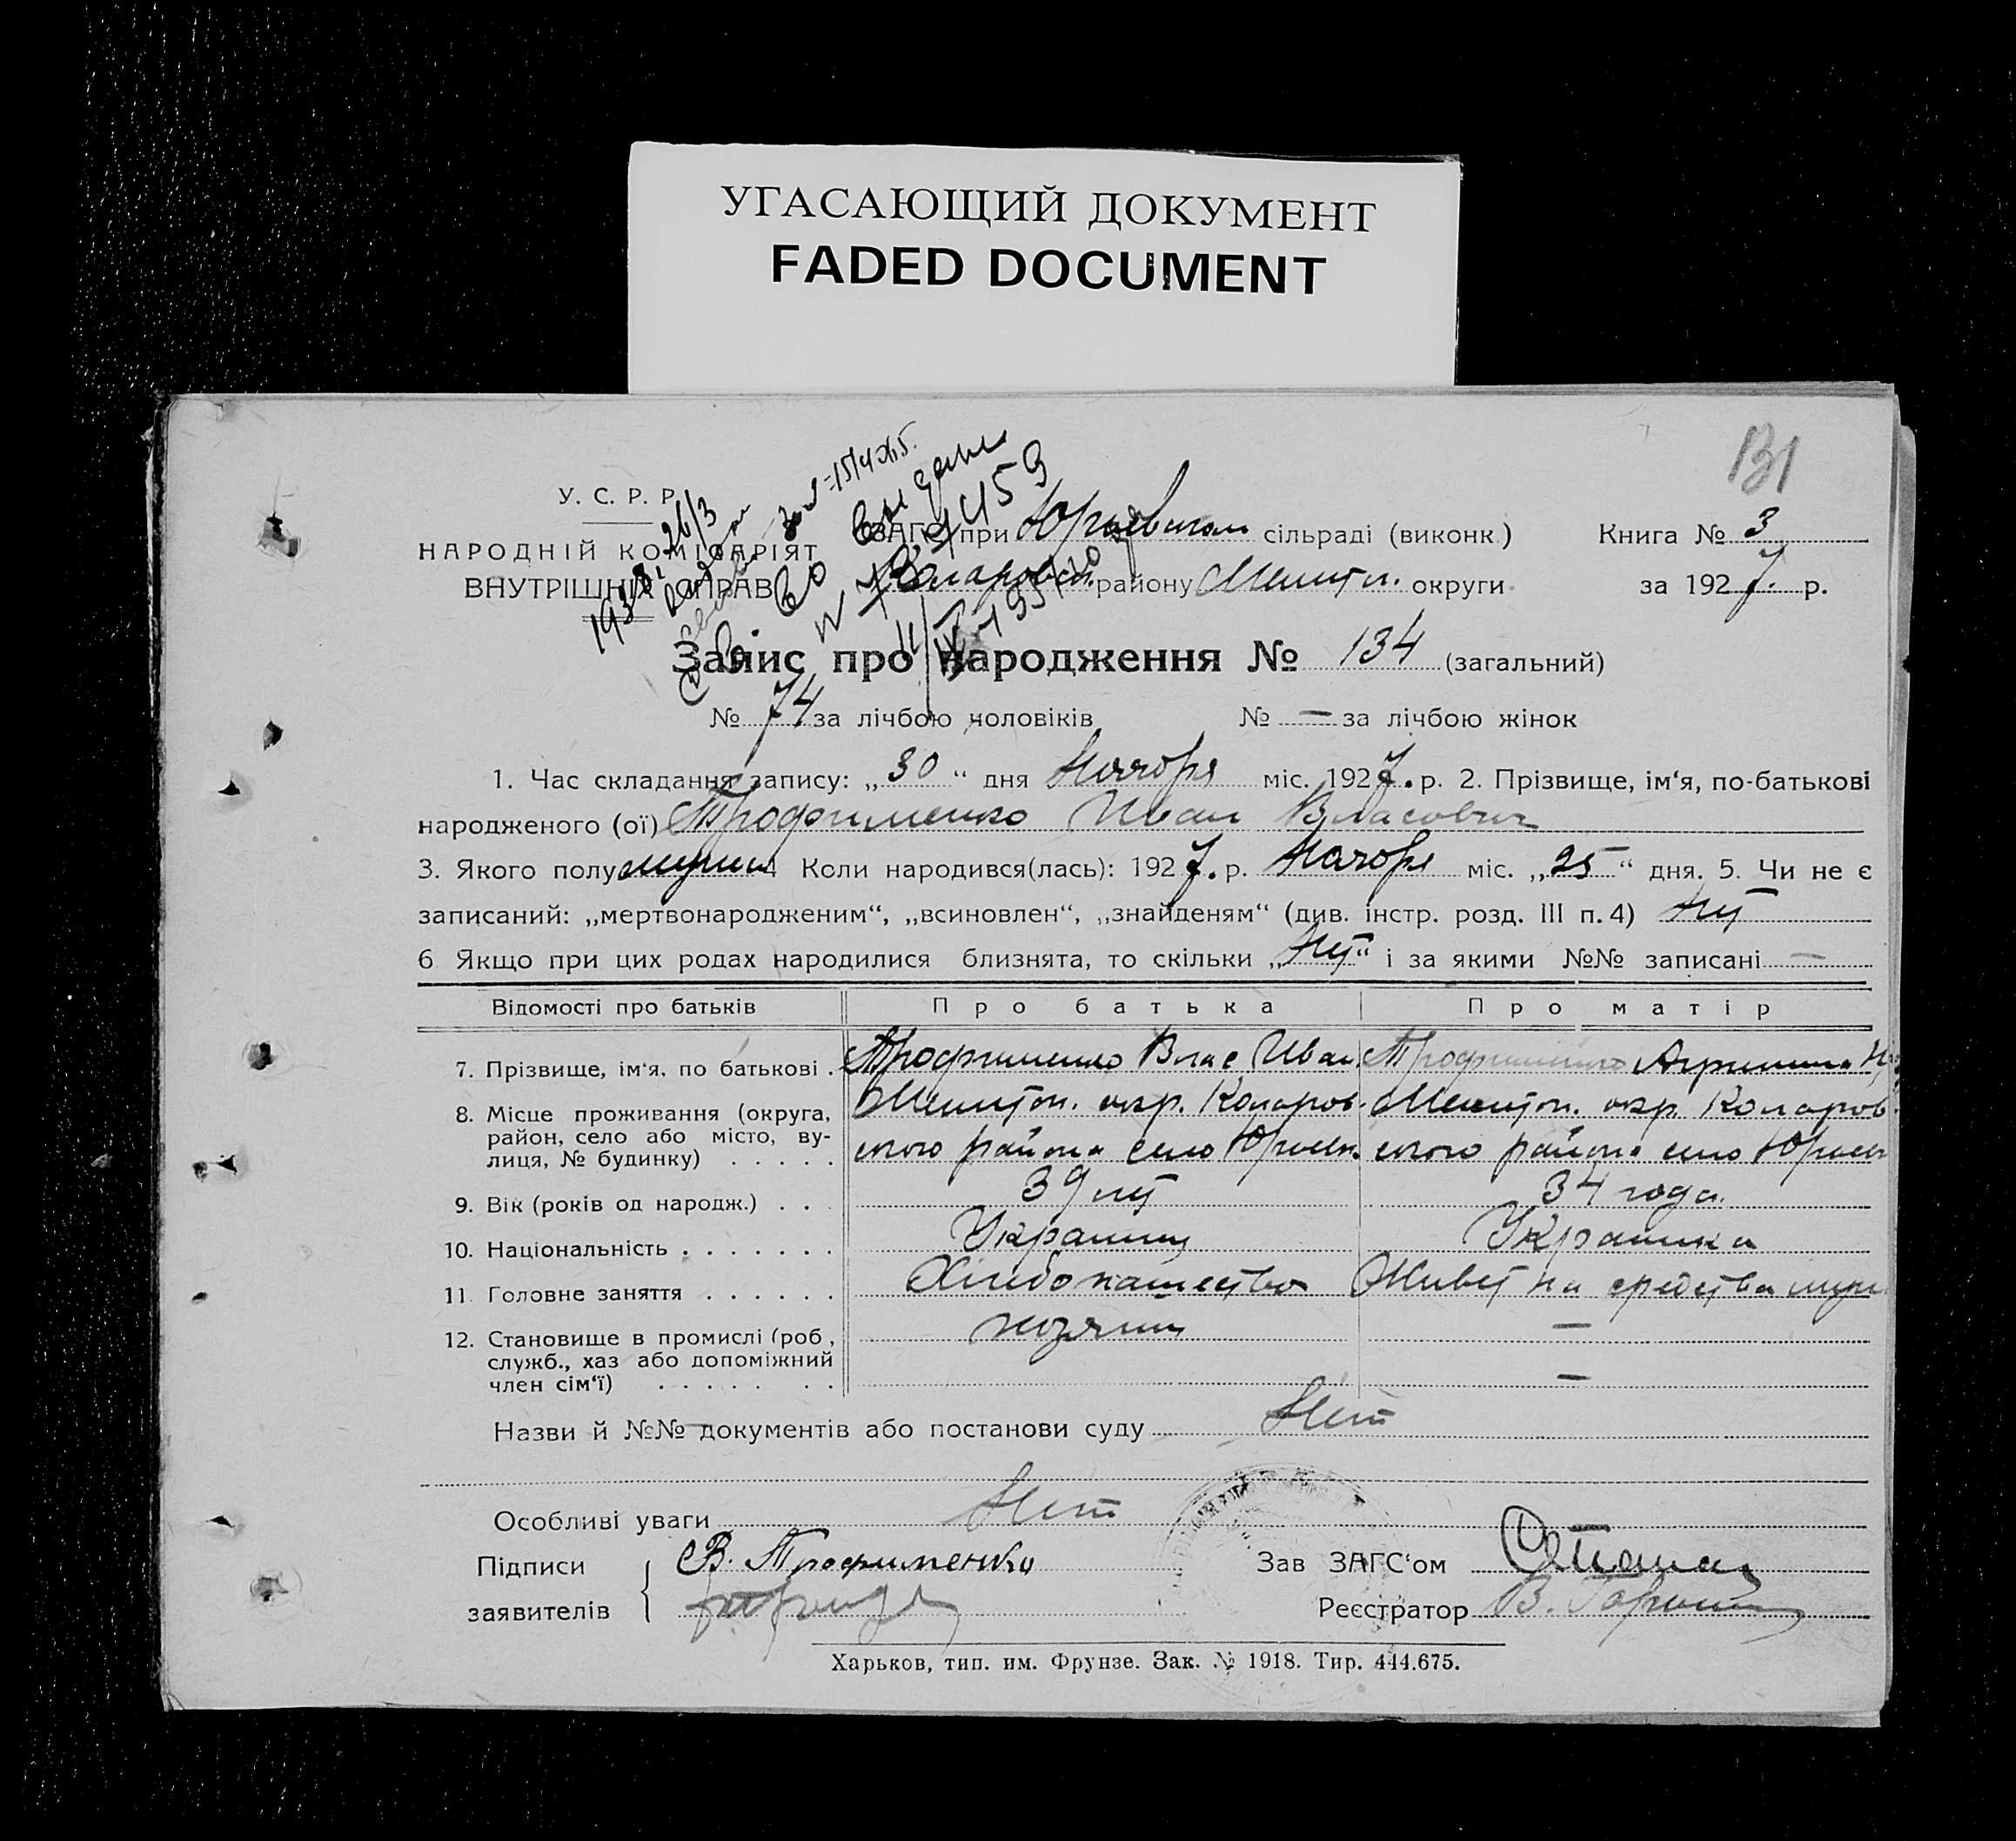 УГАСАЮЩИЙ ДОКУМЕНТ
FADED DOCUMENT
131
У. С. Р. Р.
НАРОДНІЙ КОМІСАРІЯТ
ВНУТРІШНІХ СПРАВ
ЗАГС при Юрьевском сільраді (виконк.)
Книга № 3
Коларовск. району Мелитоп. округи
за 1927 р.
Запис про народження № 134 (загальний)
№ 74 за лічбою чоловіків № — за лічбою жінок
1. Час складання запису: „30“ дня Ноября міс. 1927. р. 2. Прізвище, ім‘я, по-батькові
народженого (ої) Трофименко Иван Власович
3. Якого полу мужск 4 Коли народився(лась): 1927. р. Ноября міс. „25“ дня. 5. Чи не є
записаний: „мертвонародженим“, „всиновлен“, „знайденям“ (див. інстр. розд. III п. 4) Нет
6 Якщо при цих родах народилися близнята, то скільки „Нет“ і за якими №№ записані —
Відомості про батьків Про батька Про матір
7. Прізвище, ім‘я, по батькові . Трофименко Влас Иван. Трофименко Агрипина
8. Місце проживання (округа, Мелитоп. окр. Коларов- Мелитоп. окр. Коларов-
район, село або місто, ву-
лиця, № будинку) . . . . . ского района село Юрьевк. ского района село Юрьевк
9. Вік (років од народж.) . . . 39 лет 34 года.
10. Національність . . . . . . . Украинец Украинка
11. Головне заняття . . . . . . Хлебопашество Живет на средства мужа
12. Становище в промислі (роб., хозяин —
служб., хаз або допоміжний
член сім‘ї) . . . . . . . —
Назви й №№ документів або постанови суду Нет
Особливі уваги Нет
Підписи В. Трофименко Зав ЗАГС‘ом
заявителів Реєстратор В.
Харьков, тип. им. Фрунзе. Зак. № 1918. Тир. 444.675.